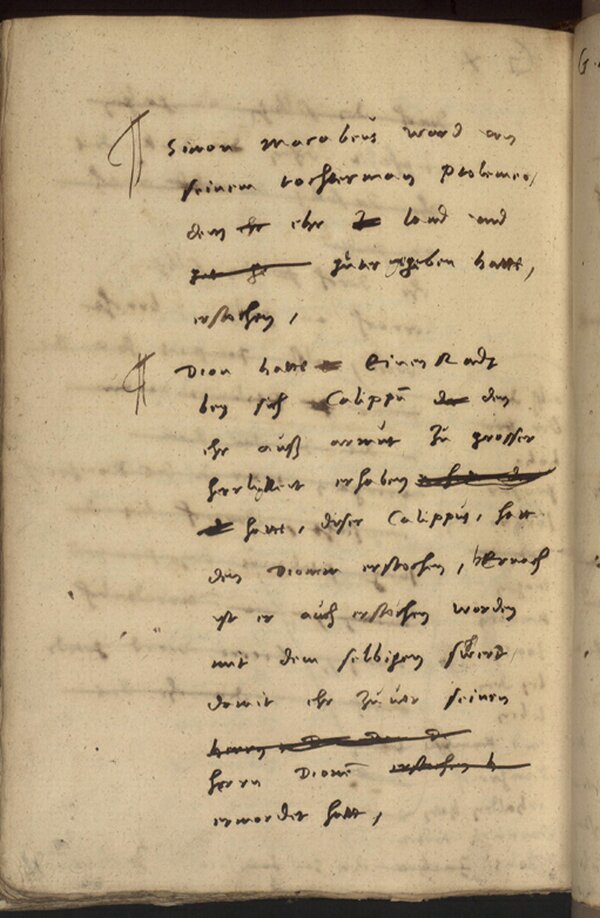 Simon Macabeus ward von
seinem tochterman Ptolemeo,
dem ehr land und
zuvor gegeben hatte,
erstochen,
Dion hatte Einen Radt
bey sich Calippū den
ehr auß armut zu grosser
herligkeit erhaben
hatte, dieser Calippus, hatt
den Dionem erstochen, hernach
ist er auch erstochen worden
mit dem selbigen schwert
damit ehr zuvor seinen
herrn
herrn Dionē erstochen h
ermordet hatt,